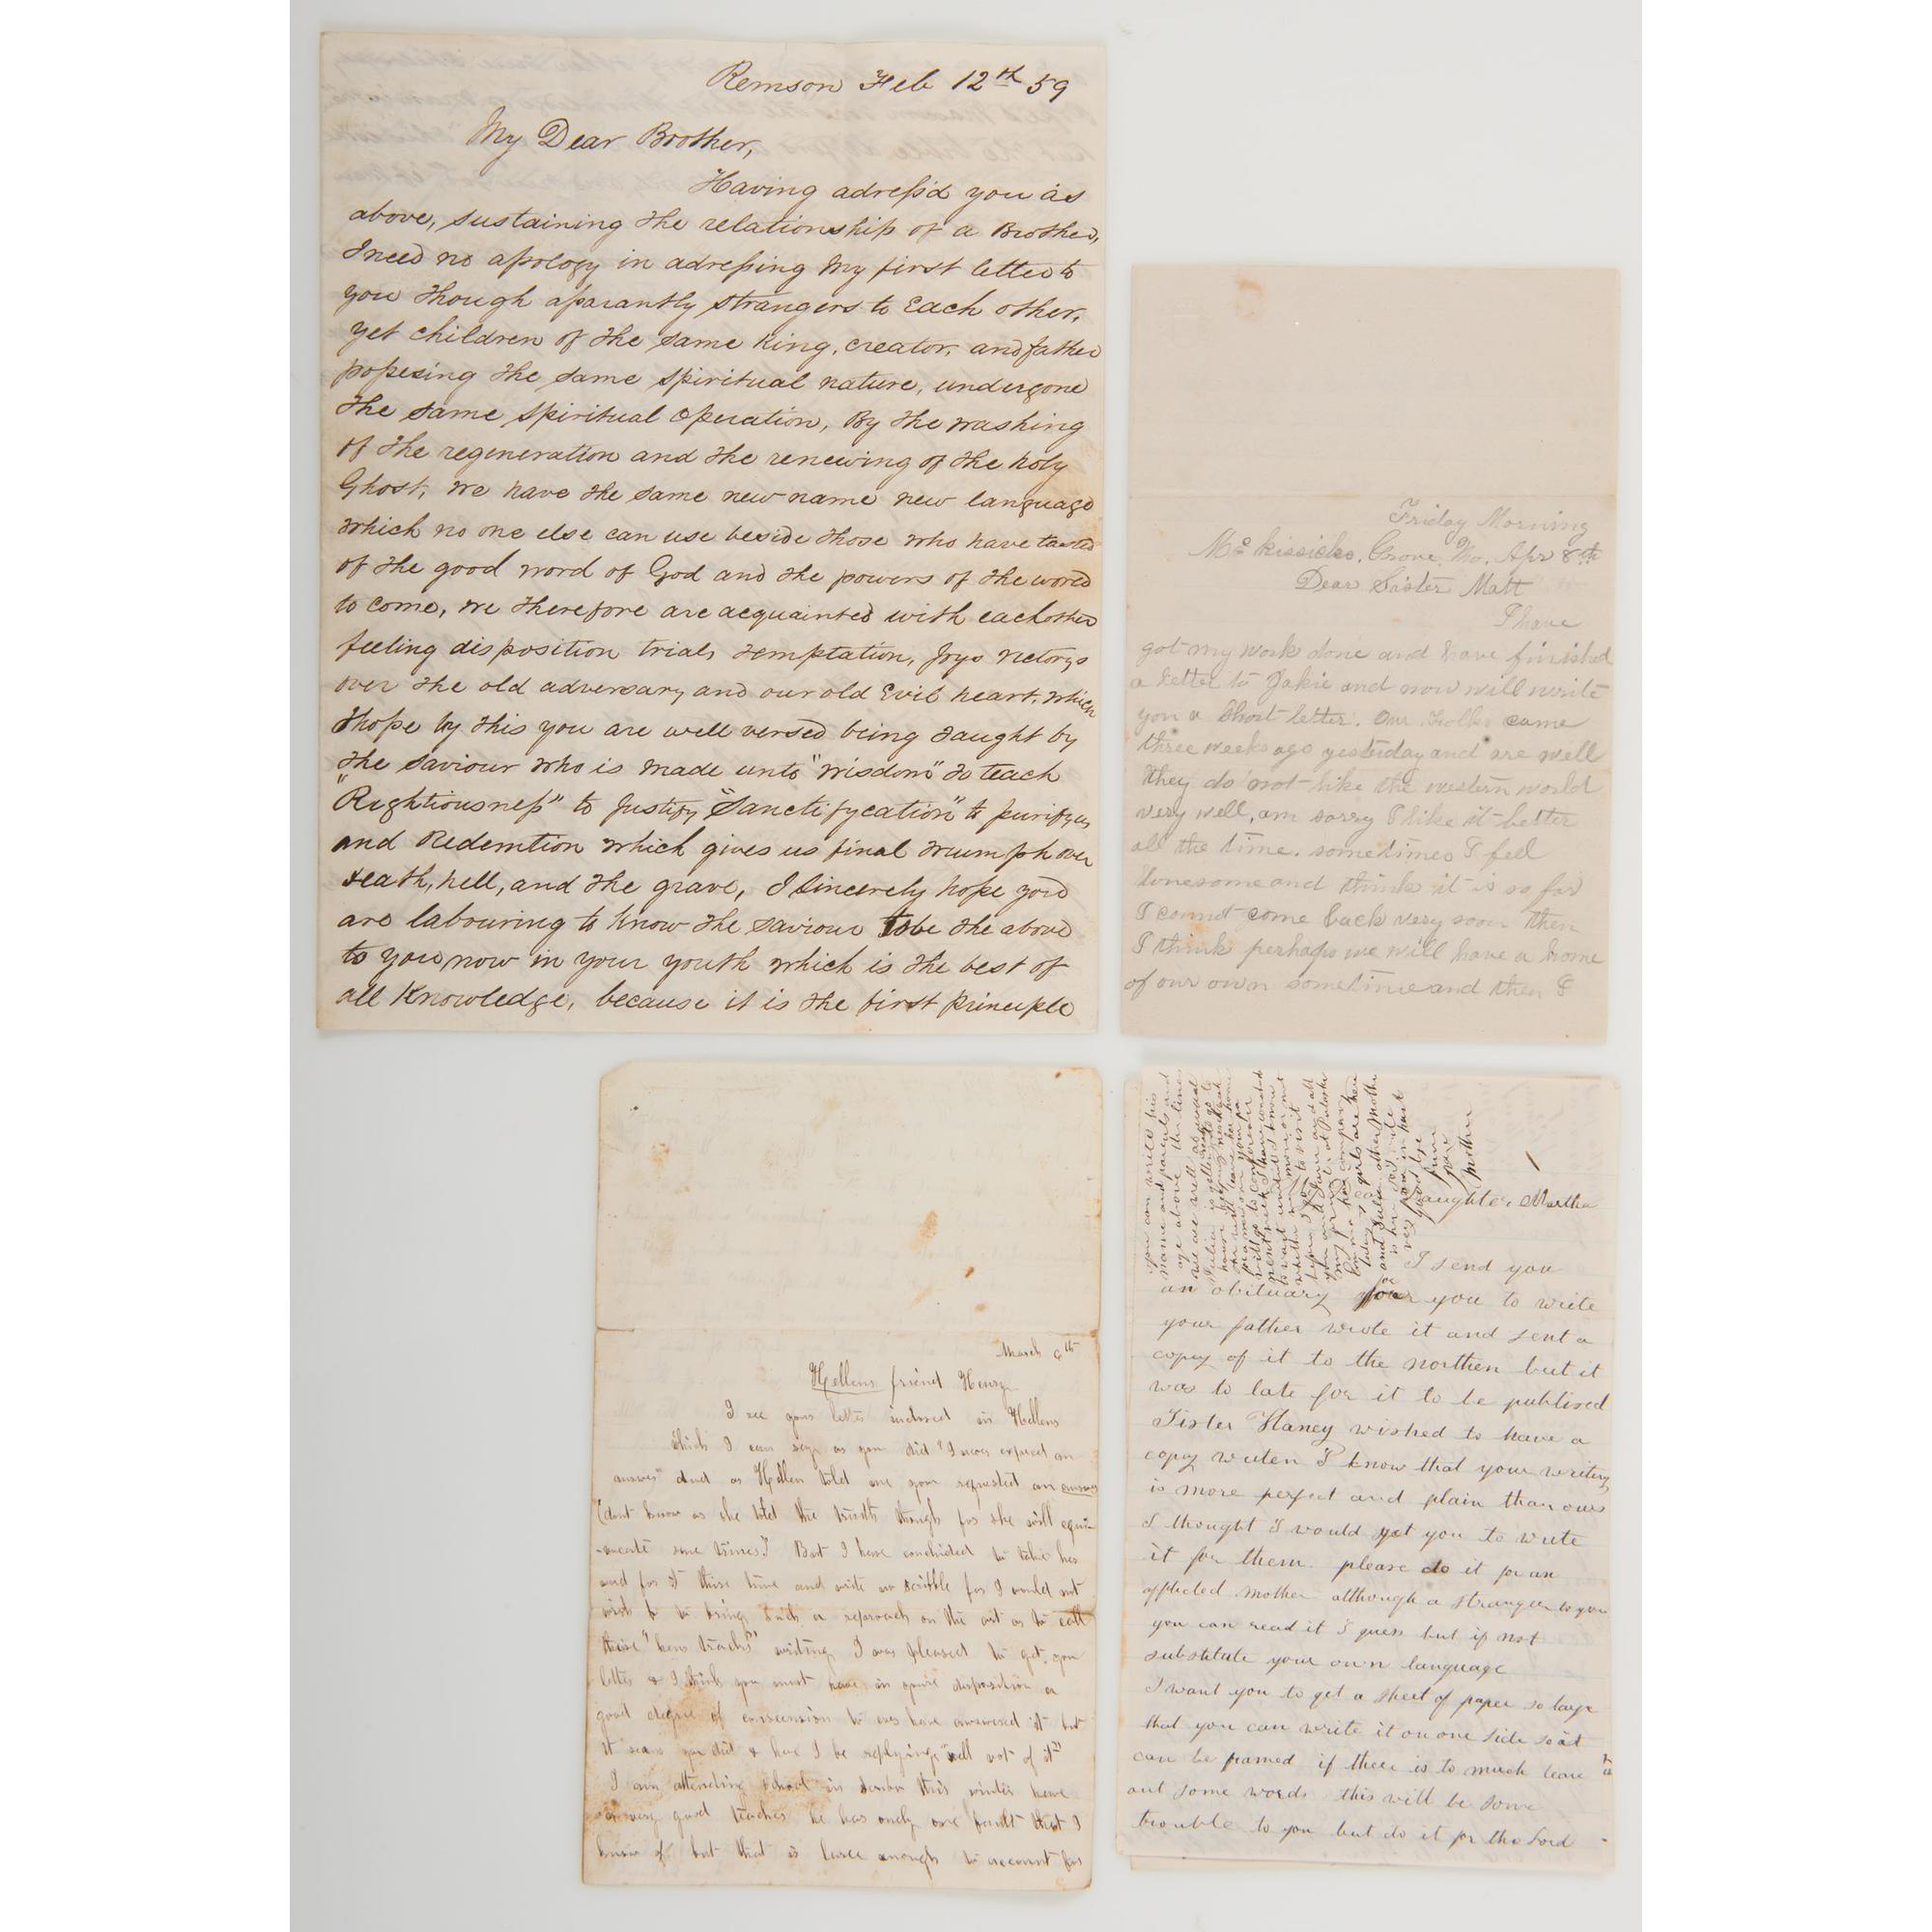 Remson Feb 12th 59
My Dear Brother,
Having adress'd you as
above, sustaining the relationship of a Brother,
I need no apology in adressing my first letter to
you though aparantly strangers to Each other,
yet children of the same King, creator, and father
posesing the same spiritual nature, undergone
the same spiritual operation, By the washing
of the regeneration and the renewing of the holy
Ghost, we have the same new name new language
which no one else can use beside those who have tasted
of the good word of God and the powers of the world
to come, we therefore are acquainted with each other
feeling disposition trials temptation, Joys victorys
over the old adversary and our old Evil heart, which
I hope by this you are well versed being taught by
the saviour who is made unto "wisdom" to teach
"Rightiousness" to Justify "Sanctifycation" to purify us
and Redemtion which gives us final triumph over
death, hell, and the grave, I sincerely hope you
are labouring to know the saviour to be the above
to you now in your youth which is the best of
all Knowledge, because it is the first principle
Friday Morning
Mc Kissicks Grove, Mo. Apr 8th
Dear Sister Matt
I have
got my work done and have finished
a letter to Jakie and now will write
you a Short letter. Our Folks came
three weeks ago yesterday and are well
they do not like the western world
very well, am sorry I like it better
all the time. sometimes I feel
lonesome and think it is so far
I connot come back very soon then
I think perhaps we will have a home
of our own sometime and then I
March 9th
Hellens friend Henry
I see your letter inclosed in Hellens
which I can say as you did "I never expected an
answer" and as Hellen told me you requested an answer
(dont know as she told the truth though for she will equiv
-ocate some times) But I have concluded to take her
word for it this time and write or scribble for I would not
wish to bring such a reproach on the art as to call
these "hen tracks" writing I was pleased to get your
letter & I think you must have in your disposition a
good degree of to ever have answered it but
it seems you did & here I be replying "well what of it"
I am attending school in this winter have
a very good teacher he has only one fault that I
know of but that is large enough to account for
you can write his
name and parents and
age above the lines
we are well as usual
good bye
from
your
mother
Daughter Martha
I send you
an obituary for you to write
your father wrote it and sent a
copy of it to the northen but it
was to late for it to be publised
Sister Haney wished to have a
copy writen I know that your writing
is more perfect and plain than ours
I thought I would get you to write
it for them. please do it for an
afflicted mother although a stranger to you
you can read it I guess but if not
substitute your own language
I want you to get a sheet of paper so large
that you can write it on one side so it
can be framed if there is to much leave
out some words this will be some
trouble to you but do it for the Lord